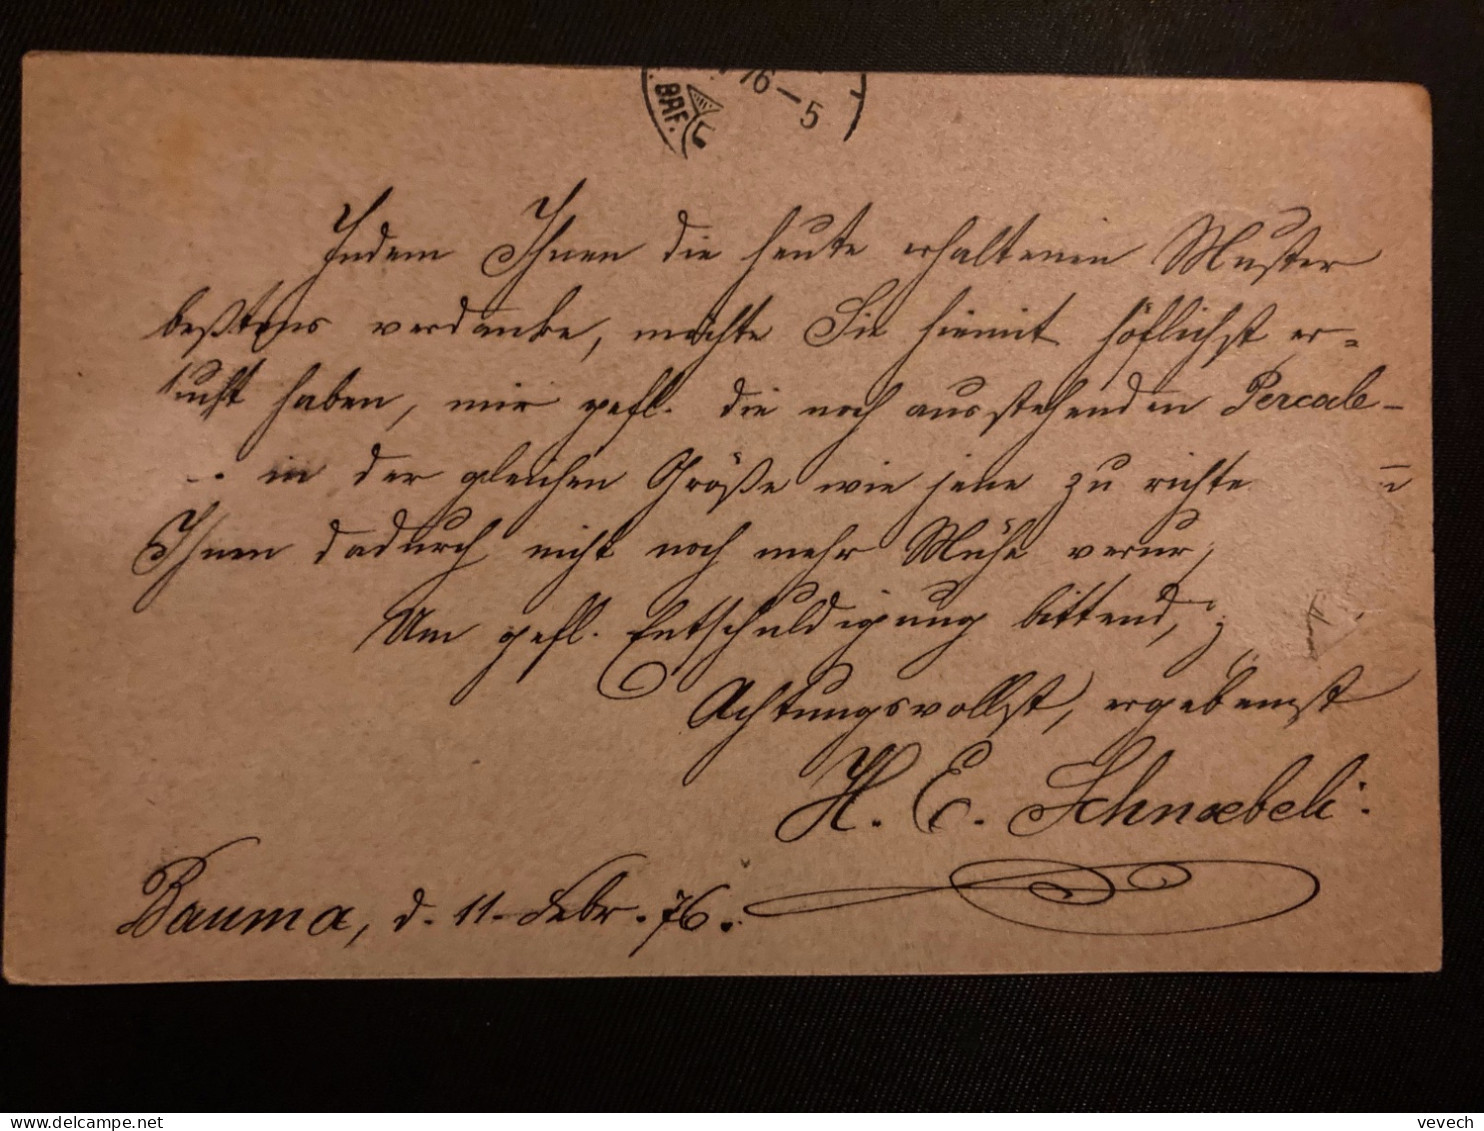 BRF. 76-5
Indem Ihnen die heute erhaltenen Muster
bestens verdanke, möchte Sie hiemit höflichst er=
sucht haben, mir gefl. die noch ausstehenden Percale-
in der gleichen Größe wie jene zu richte
Ihnen dadurch nicht noch mehr Mühe verur
Um gefl. Entschuldigung bittend,
Achtungsvollst, ergebenst
H. E. Schnæbeli.
Bauma, d. 11. Febr. 76.
vevech